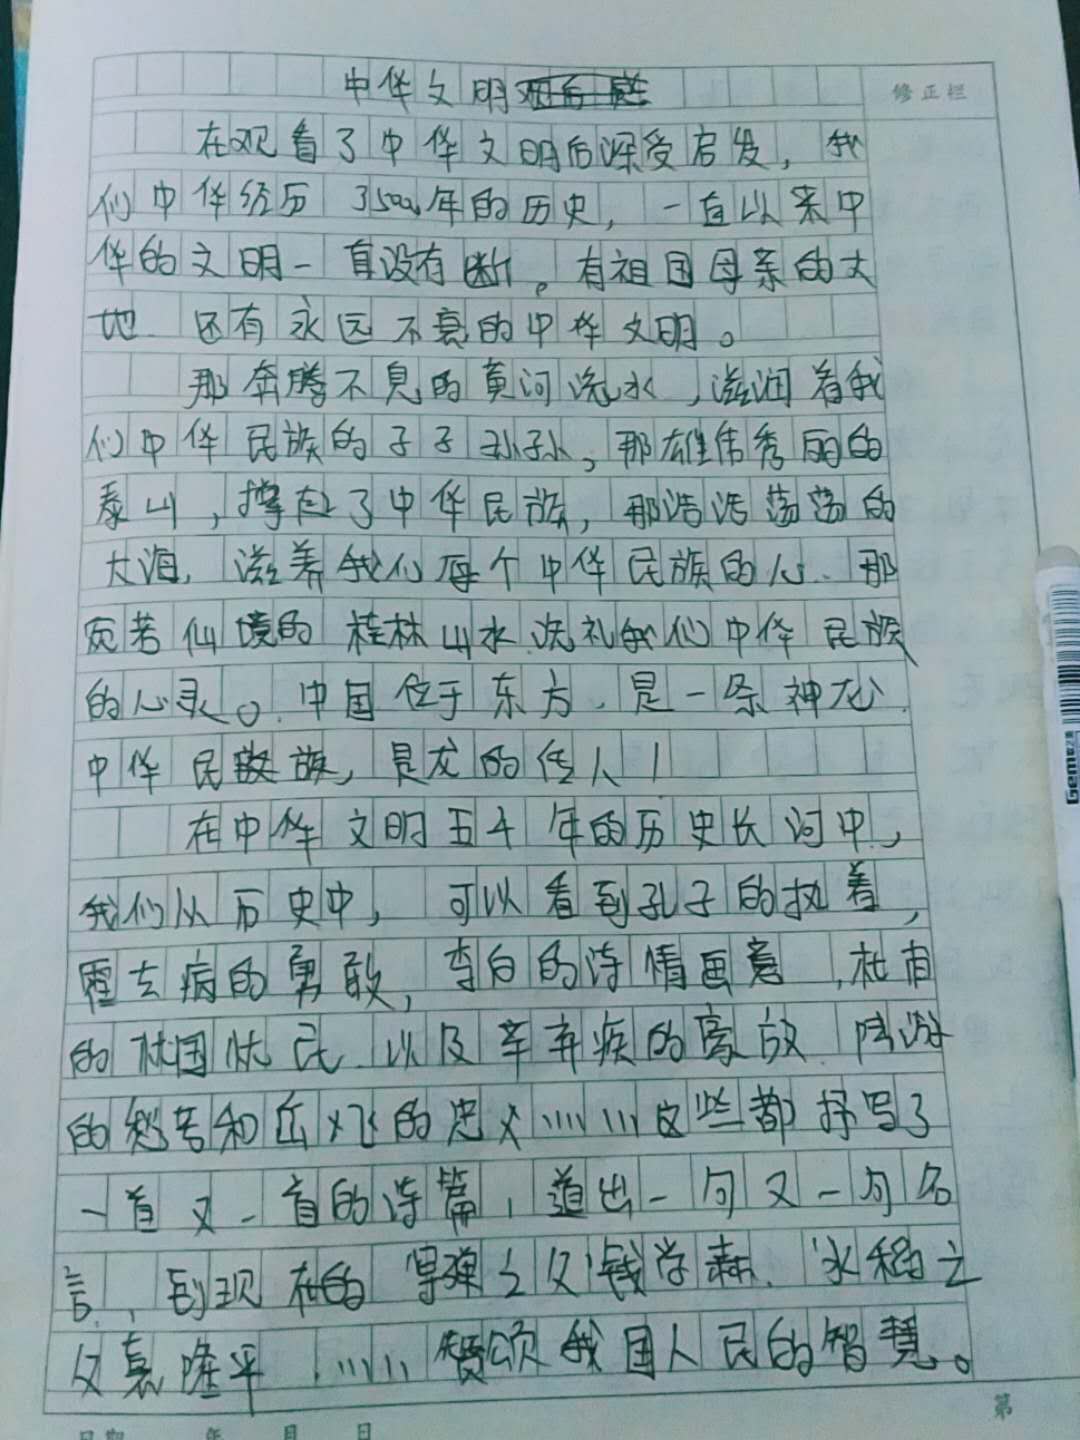 中华文明观后感
修正栏
在观看了中华文明后深受启发，我
们中华经历了5000年的历史，一直以来中
华的文明一直没有断。有祖国母亲的大
地 还有永远不衰的中华文明。
那奔腾不息的黄河洗水，滋润着我
们中华民族的子子孙孙，那雄伟秀丽的
泰山，撑起了中华民族，那浩浩荡荡的
大海，滋养我们每个中华民族的心、那
宛若仙境的桂林山水洗礼我们中华民族
的心灵。中国位于东方、是一条神龙、
中华民族，是龙的传人！
在中华文明五千年的历史长河中，
我们从历史中，可以看到孔子的执着，
霍去病的勇敢，李白的诗情画意，杜甫
的忧国忧民、以及辛弃疾的豪放、陆游
的愁苦和岳飞的忠义……这些都抒写了
一首又一首的诗篇，道出一句又一句名
言，到现在的导弹之父钱学森、水稻之
父袁隆平……赞颂我国人民的智慧。
Gem
第
日期 年 月 日